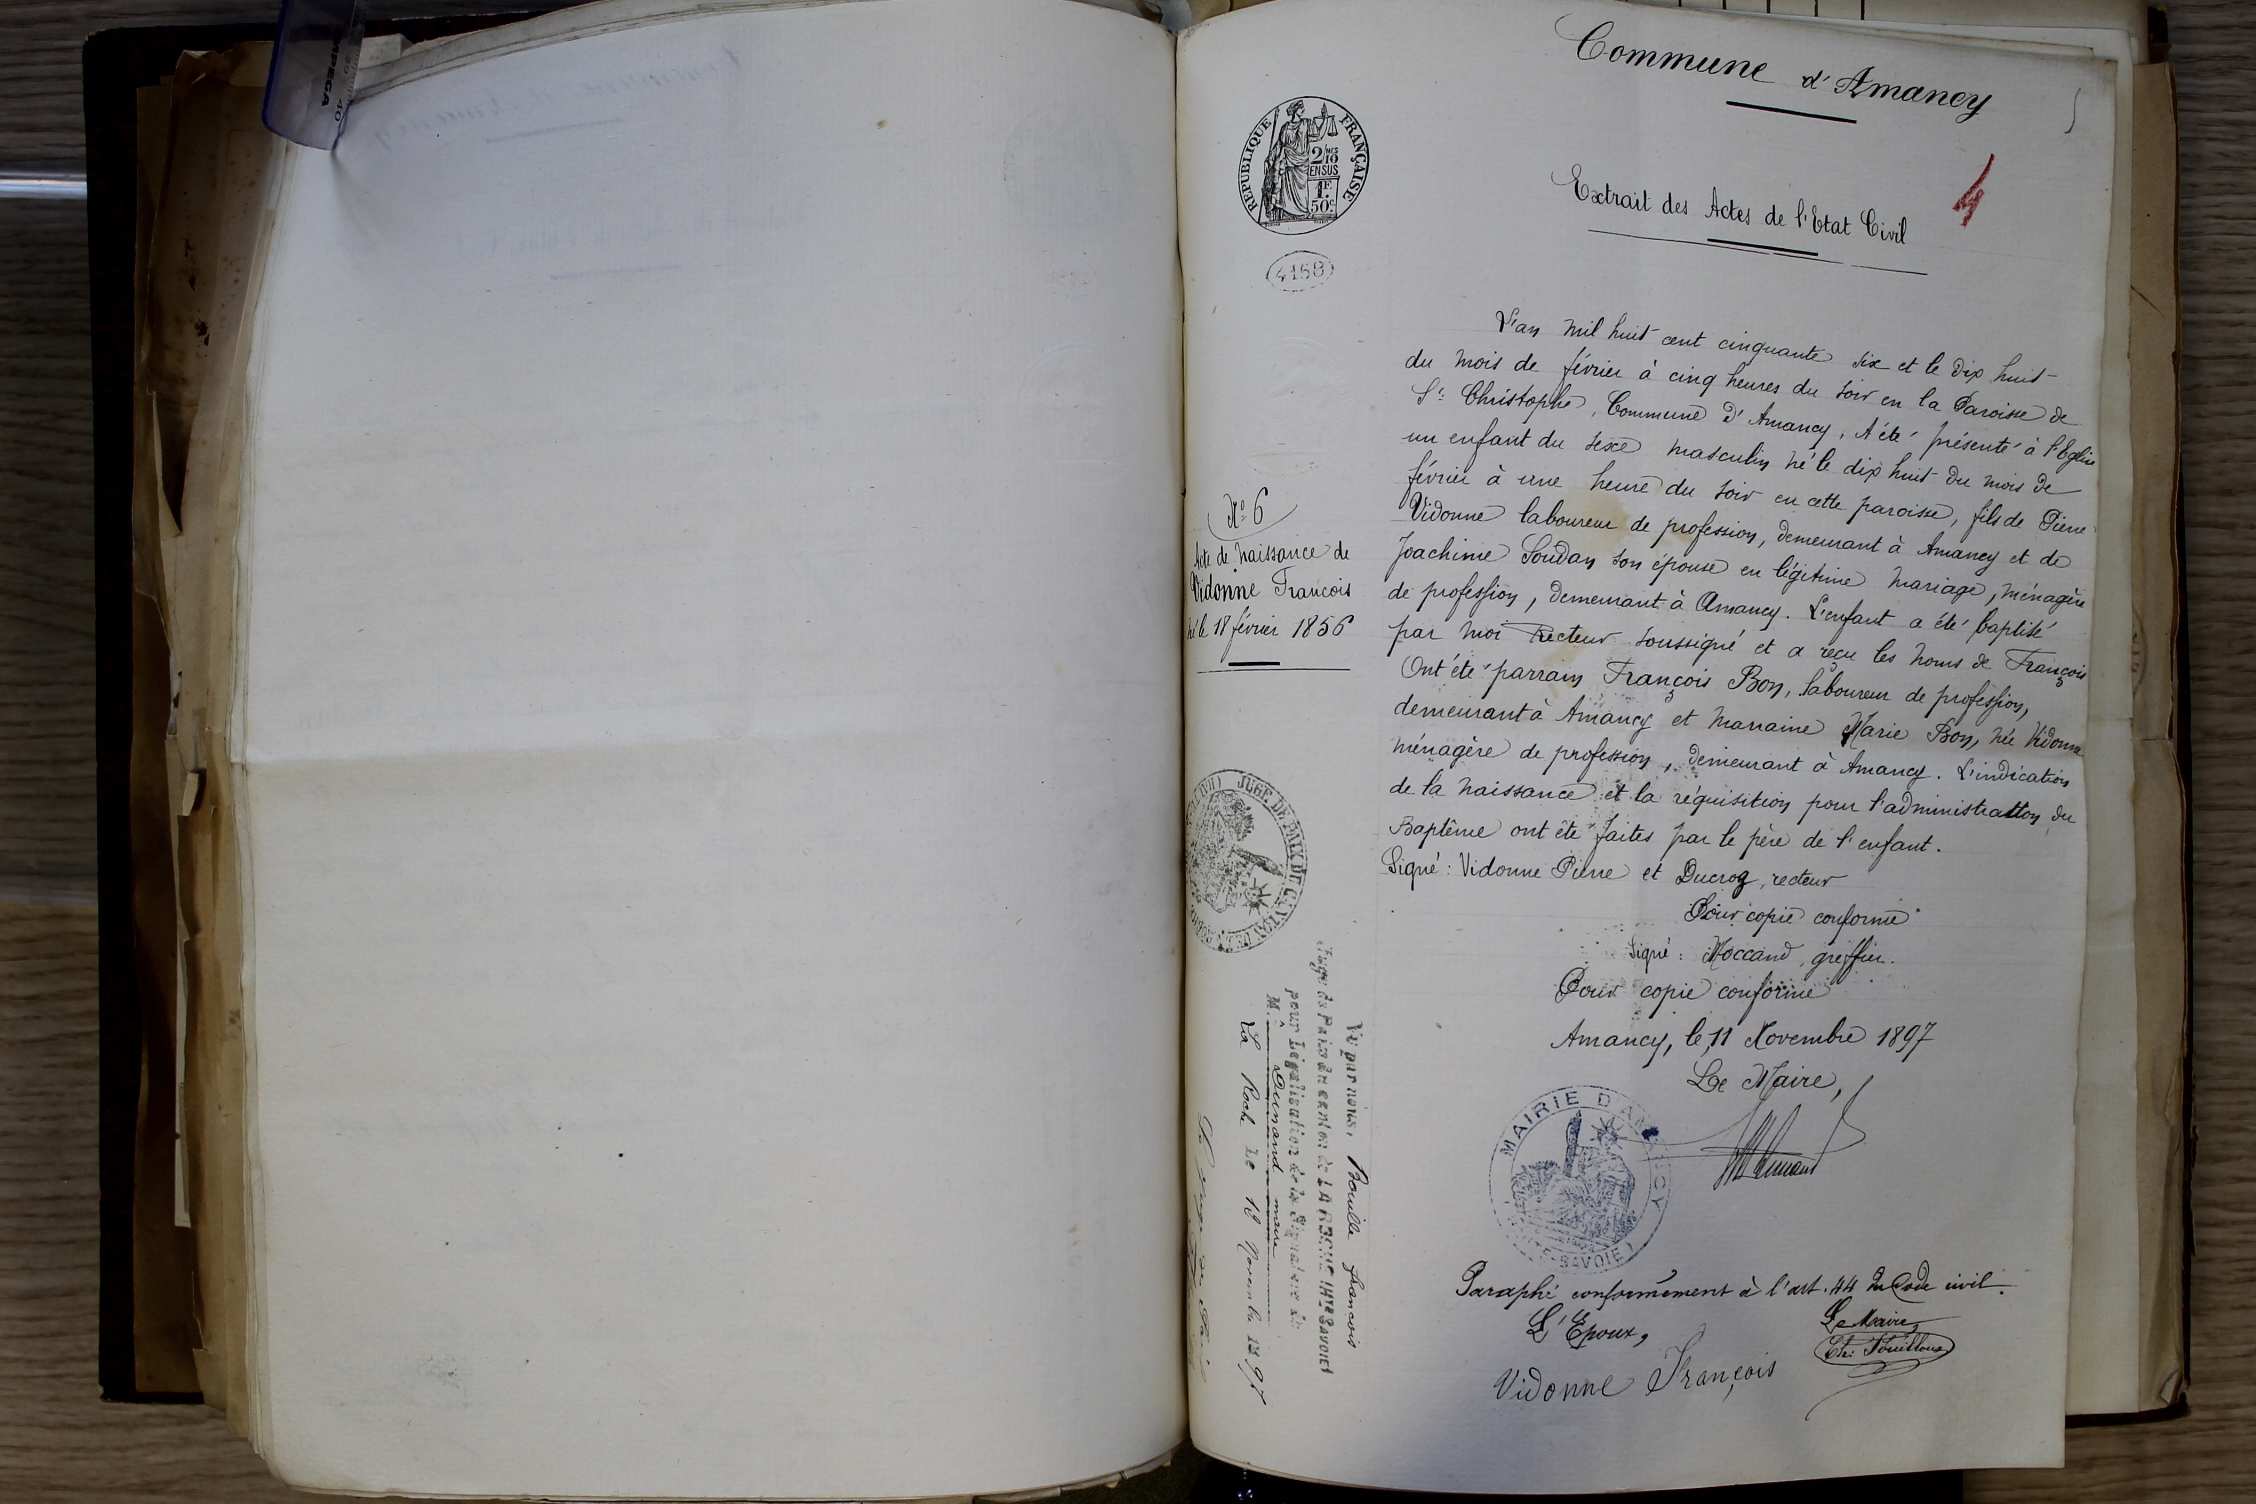 Commune d'Amancy
Extrait des Actes de l'Etat Civil
4
RÉPUBLIQUE FRANÇAISE
2/10 EN SUS
1F 50c
4158
L'an mil huit cent cinquante six et le dix huit
du mois de février à cinq heures du soir en la Paroisse de
St Christophe, Commune d'Amancy, A été présenté à l'Eglise
un enfant du sexe masculin né le dix huit du mois de
février à une heure du soir en cette paroisse, fils de Pierre
Vidonne laboureur de profession, demeurant à Amancy et de
Joachime Soudan son épouse en légitime mariage, ménagère
de profession, demeurant à Amancy. L'enfant a été baptisé
par moi Recteur soussigné et a reçu les noms de François
Ont été parrain François Bon, laboureur de profession,
demeurant à Amancy et marraine Marie Bon, née Vidonne
ménagère de profession, demeurant à Amancy. L'indication
de la naissance et la réquisition pour l'administration du
Baptême ont été faites par le père de l'enfant.
Signé: Vidonne Pierre et Ducroz, recteur
Pour copie conforme
Signé: Moccand, greffier.
Pour copie conforme
Amancy, le 11 Novembre 1897
Le Maire,
MAIRIE D'AMANCY
(HTE-SAVOIE)
Paraphé conformément à l'art. 44 du Code civil.
L'Epoux,
Le Maire,
Vidonne François
No 6
Acte de Naissance de
Vidonne François
né le 18 février 1856
JUGE DE PAIX DE CANTON DE LA ROCHE
Vu par nous, Bouille françois
Juge de Paix du canton de LA ROCHE (Hte SAVOIE)
pour Légalisation de la Signature de
M. Dunand maire
La Roche Le 18 Novembre 1897
Le juge de Paix